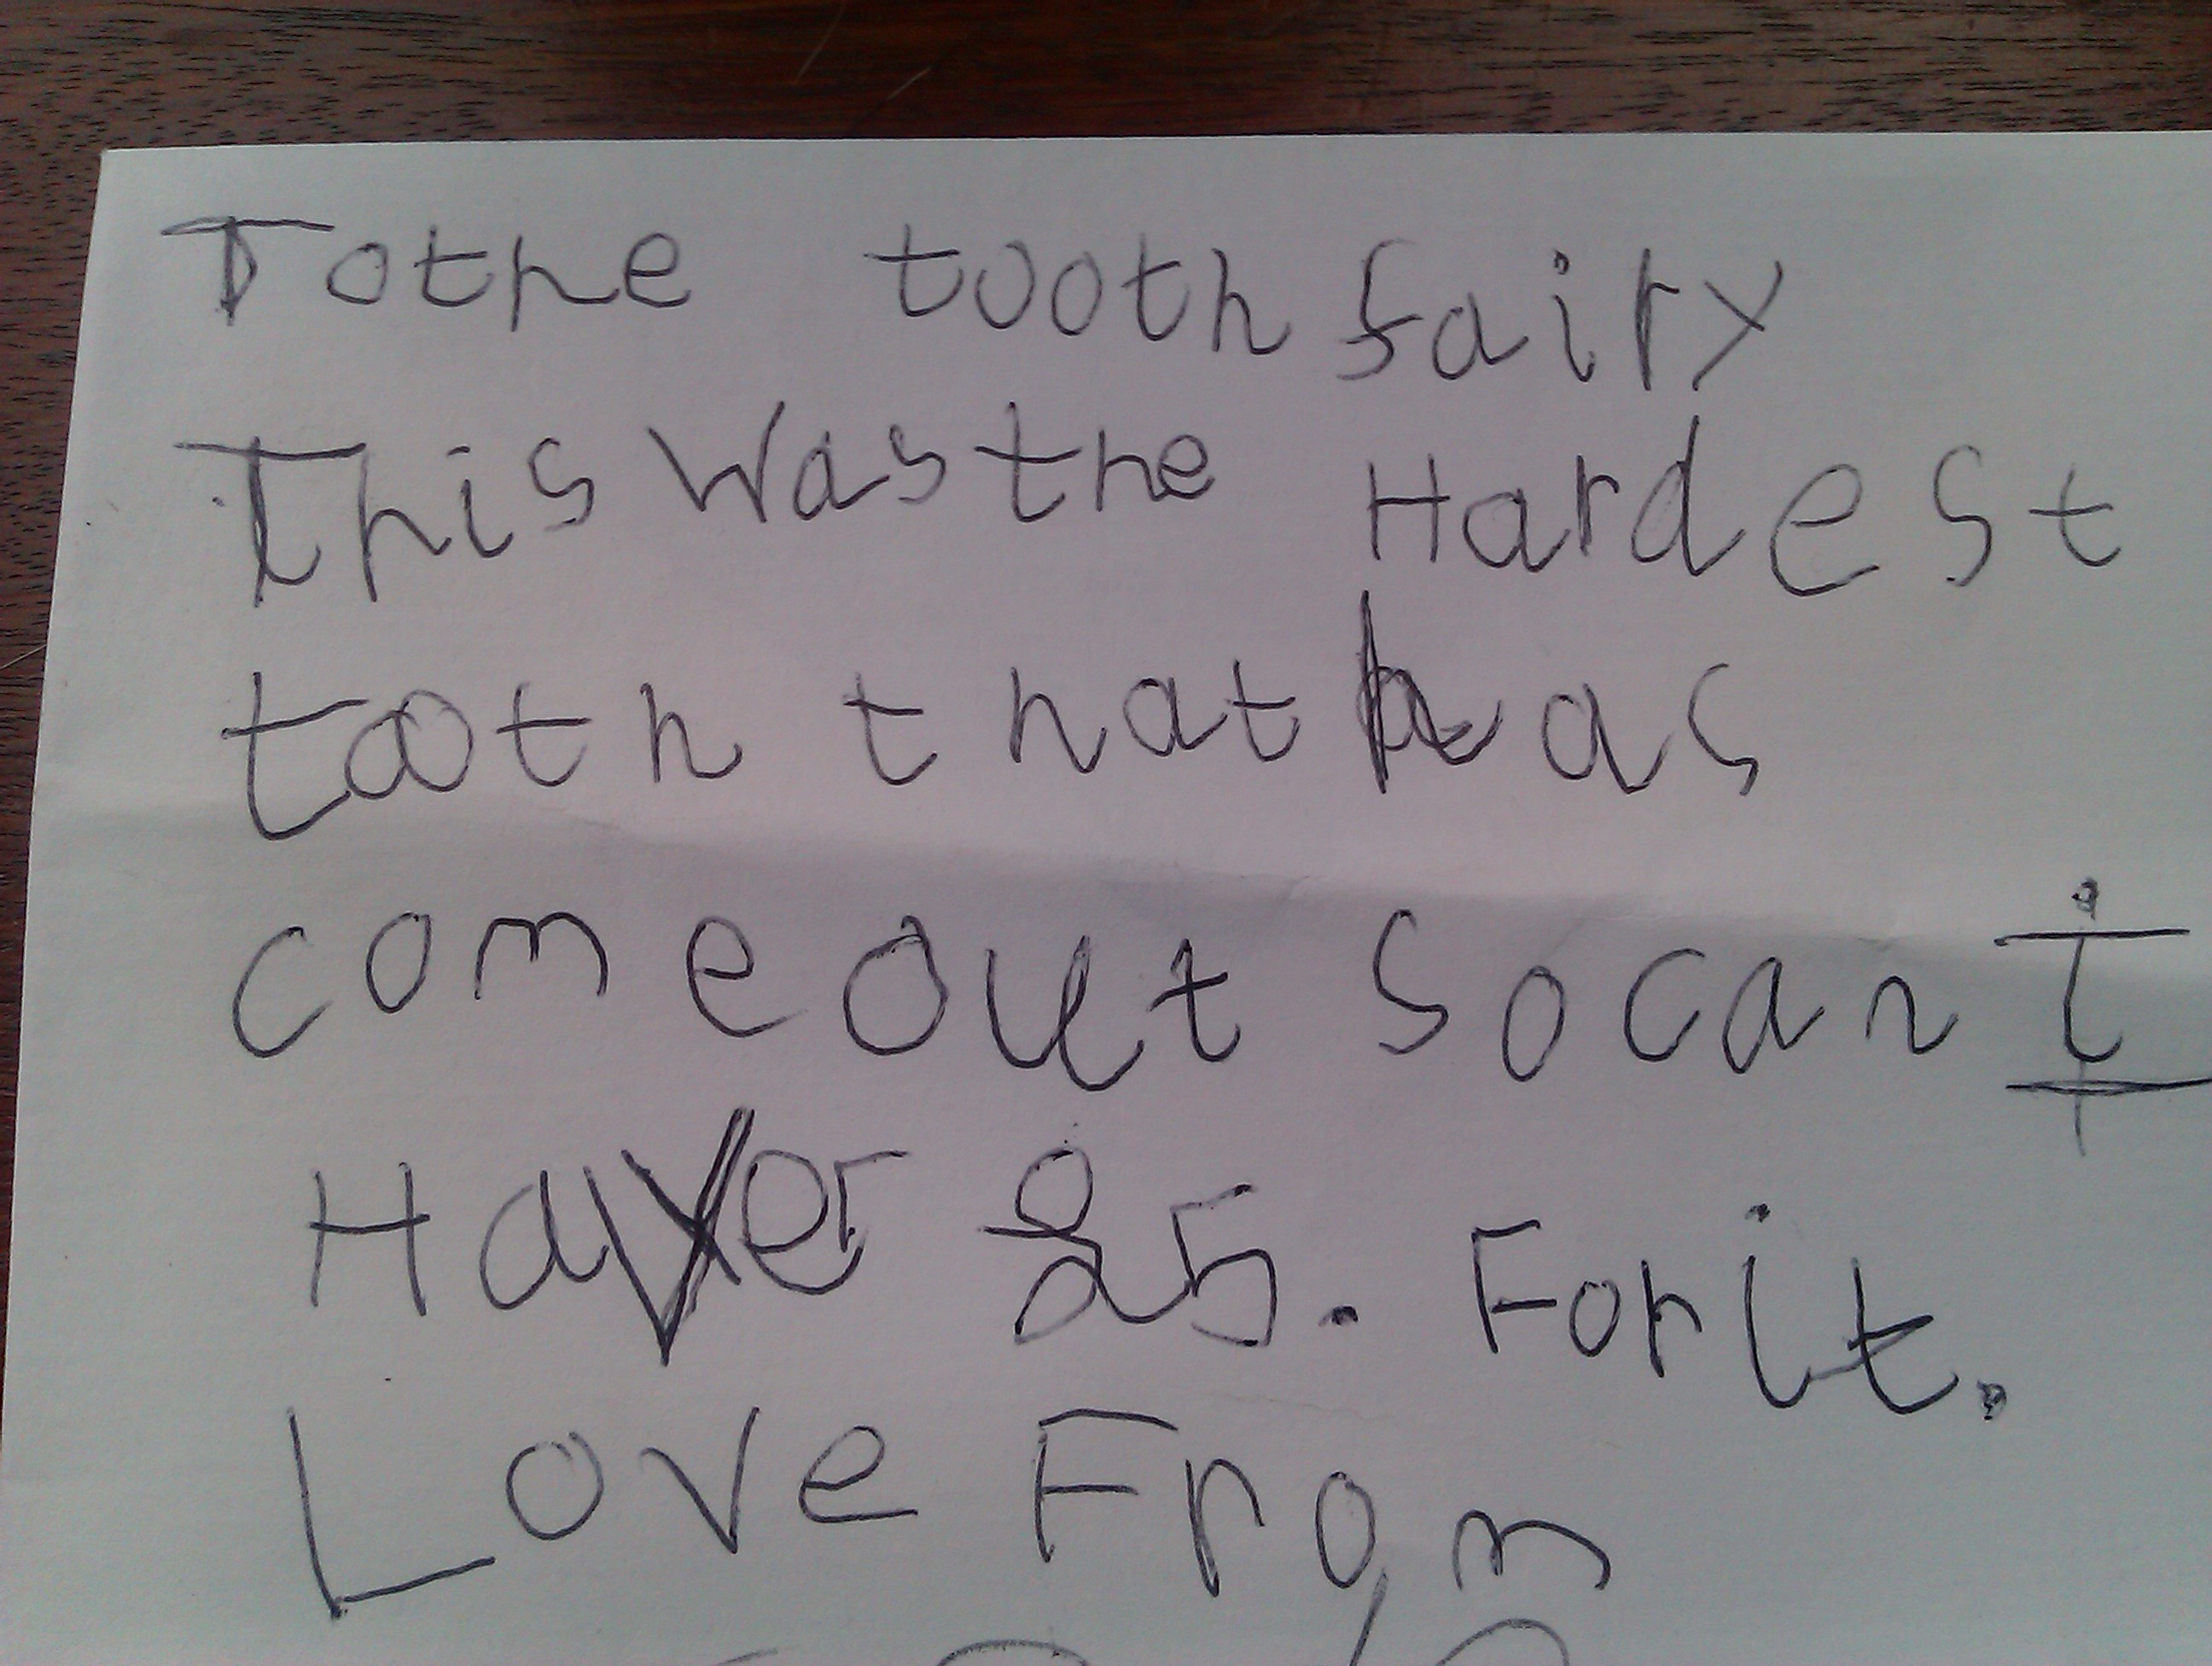 To the tooth fairy
This Was the Hardest
tooth that has
come out so can I
Haver £5. For it.
Love From